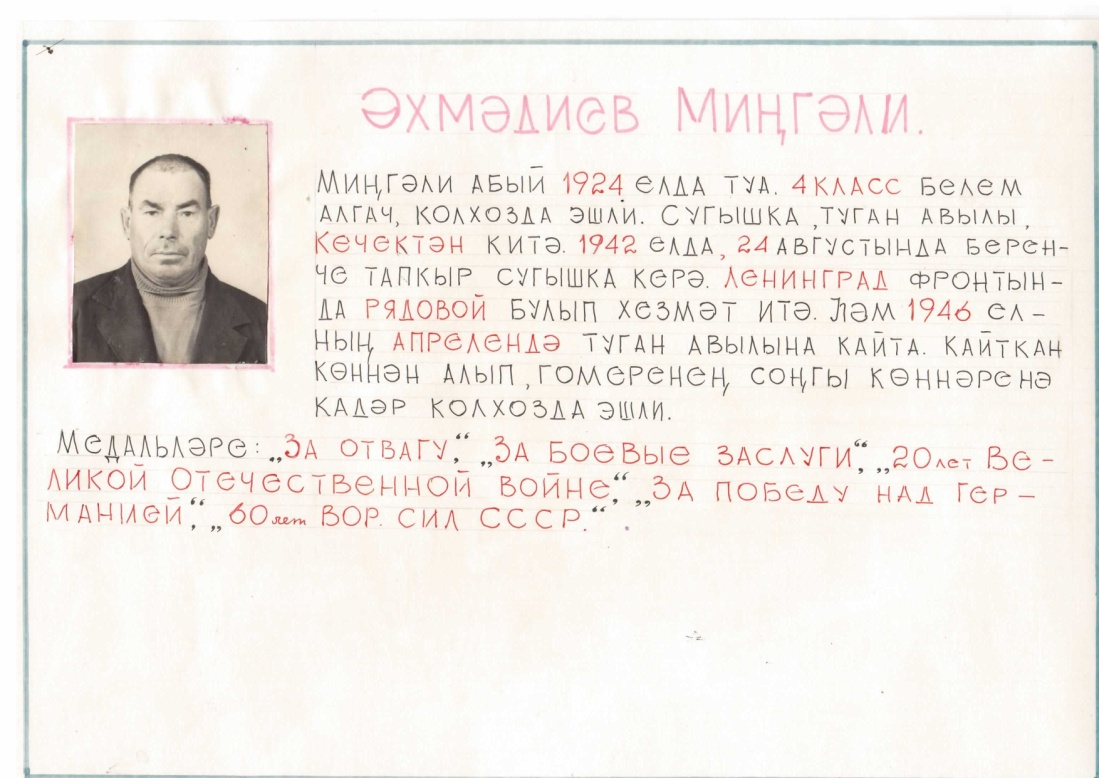 Әхмәдиев Миңгәли.
Миңгәли абый 1924 елда туа. 4 класс белем
алгач, колхозда эшли. Сугышка, туган авылы,
Кечектән китә. 1942 елда, 24 августында берен-
че тапкыр сугышка керә. Ленинград фронтын-
да рядовой булып хезмәт итә. Һәм 1946 ел-
ның апрелендә туган авылына кайта. Кайткан
көннән алып, гомеренең соңгы көннәренә
кадәр колхозда эшли.
Медальләре: „За отвагу“, „За боевые заслуги“, „20 лет Ве-
ликой Отечественной войне“, „За победу над Гер-
манией“, „60 лет вор. сил СССР.“